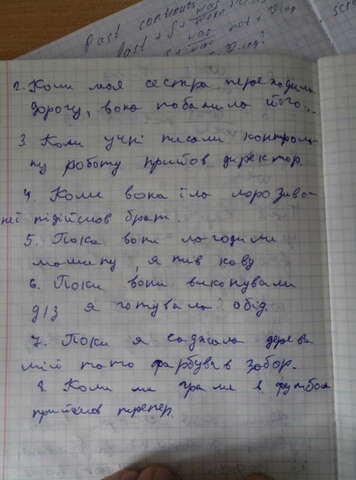 Past continuous
Past S
2. Коли моя сестра переходила
дорогу, вона побачила його...
3. Коли учні писали контроль
ну роботу прийшов директор
4. Коли вона їла морозиво
неї підійшов брат.
5. Поки вони лагодили
машину, я пив каву
6. Поки вони виконували
д/з я готувала обід
7. Поки я саджала дерева
мій тато фарбував забор.
8. Коли ми грали в футбол
прийшов тренер.